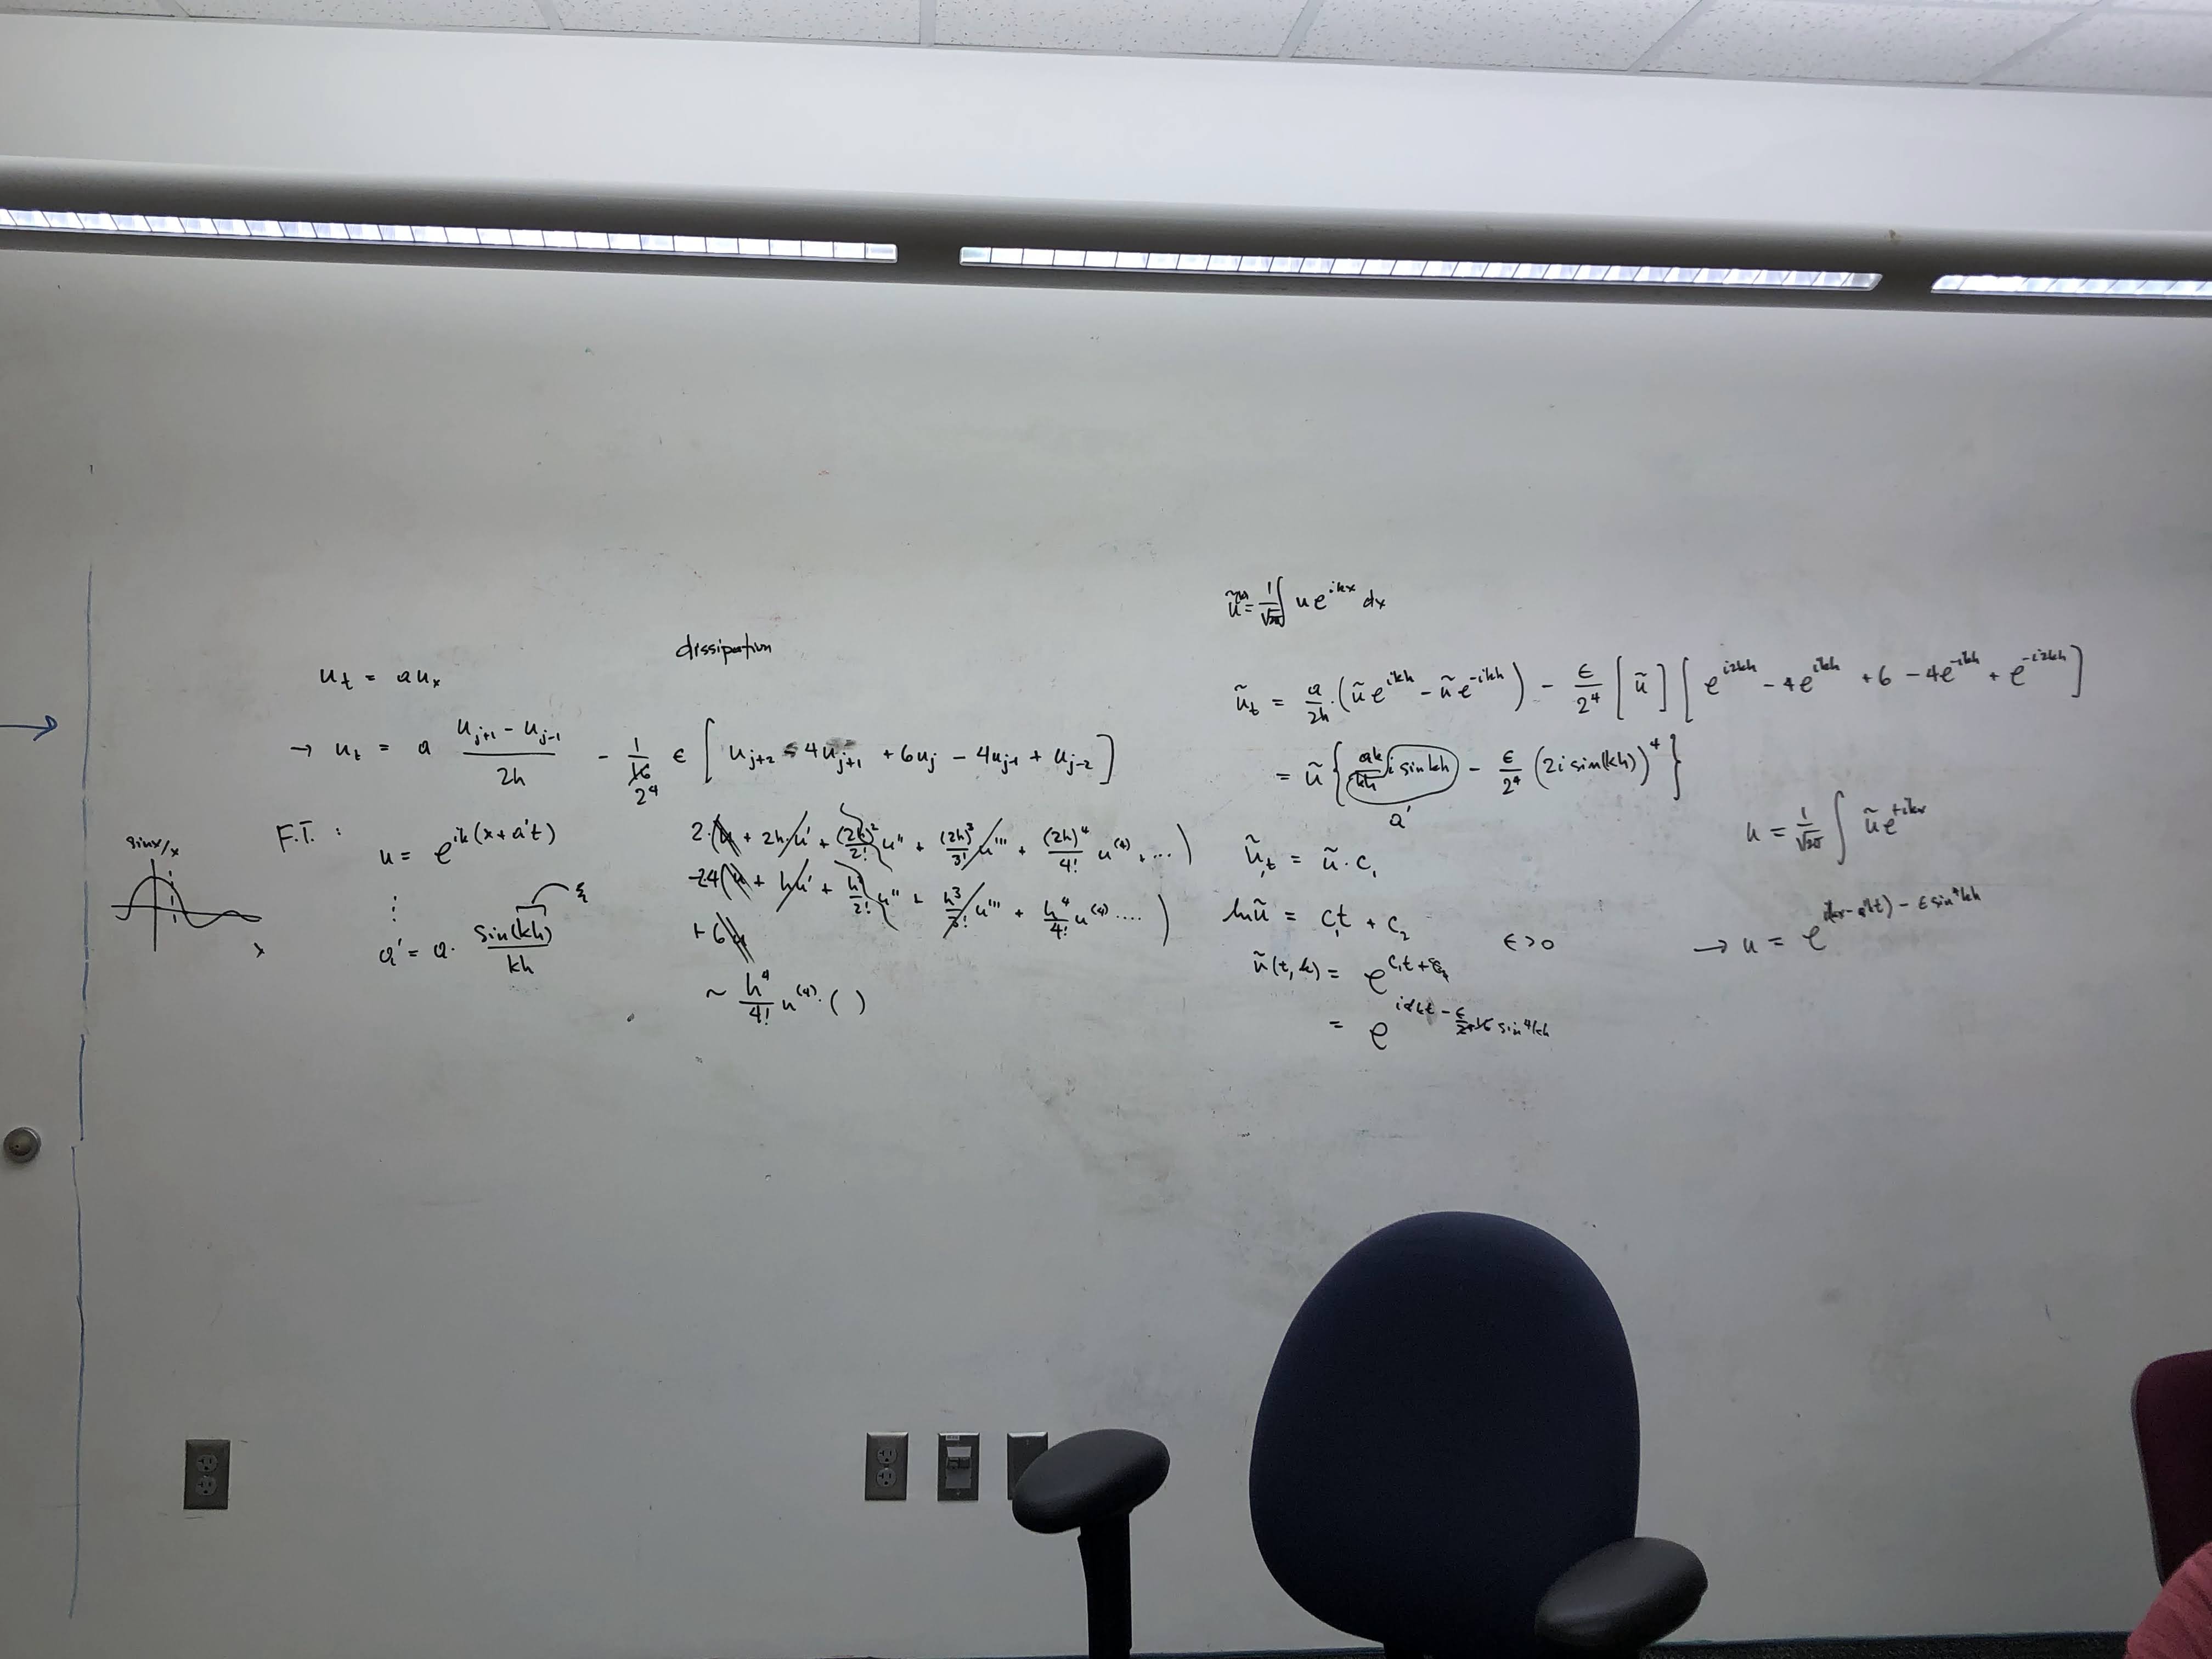 dissipation
u_t = a u_x
→ u_t = a (u_{j+1} - u_{j-1}) / 2h - 1/2^4 ε [ u_{j+2} - 4u_{j+1} + 6u_j - 4u_{j-1} + u_{j-2} ]
F.T. :
u = e^{ik(x+a't)}
⋮
a' = a · sin(kh) / kh
ξ
sinx/x
x
2·(u + 2h·u' + (2h)^2/2! u'' + (2h)^3/3! u''' + (2h)^4/4! u^{(4)} + ...)
-24(u + hu' + h^2/2! u'' + h^3/3! u''' + h^4/4! u^{(4)} ....)
+ 6u
~ h^4/4! u^{(4)} · ( )
ũ = 1/√2π ∫ u e^{ikx} dx
ũ_t = a/2h · (ũ e^{ikh} - ũ e^{-ikh}) - ε/2^4 [ũ] [e^{i2kh} - 4e^{ikh} + 6 - 4e^{-ikh} + e^{-i2kh}]
= ũ { ak/kh i sin kh - ε/2^4 (2i sin(kh))^4 }
a'
ũ_{,t} = ũ · c_1
ln ũ = c_1 t + c_2
ε > 0
ũ(t, k) = e^{c_1 t + c_2}
= e^{ia'kt - ε sin^4 kh}
u = 1/√2π ∫ ũ e^{+ikx}
→ u = e^{i(kx - a'kt) - ε sin^4 kh}